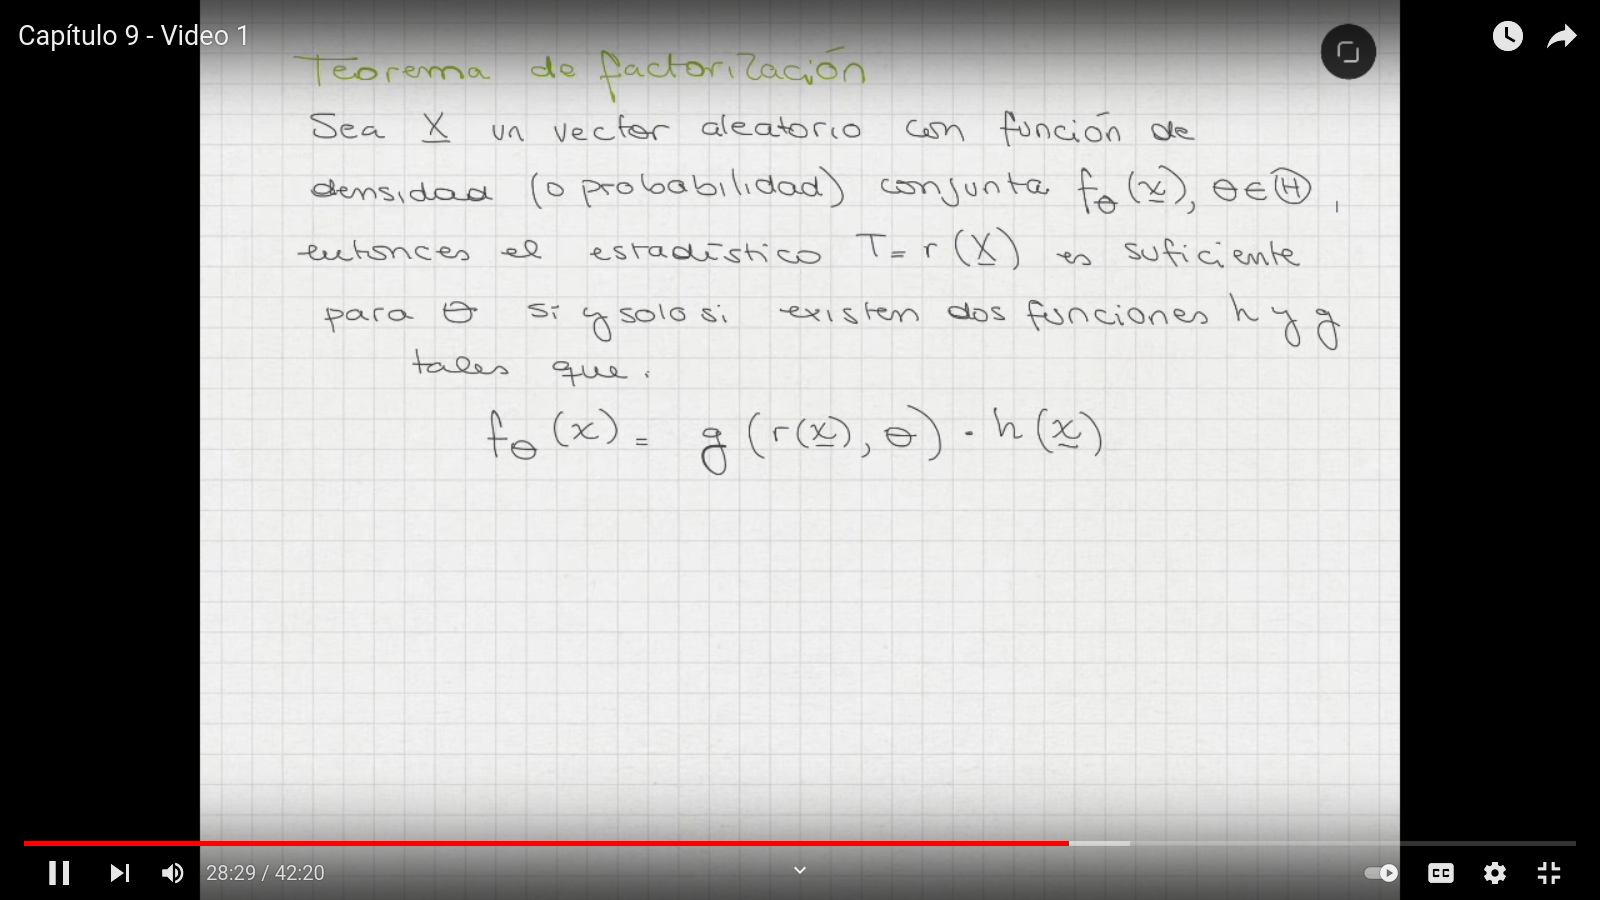 Capítulo 9 - Video 1
Teorema de factorización
Sea X un vector aleatorio con función de
densidad (o probabilidad) conjunta fθ(x), θ∈Θ,
entonces el estadístico T = r(X) es suficiente
para θ si y solo si existen dos funciones h y g
tales que.
fθ(x) = g(r(x), θ) · h(x)
28:29 / 42:20
CC